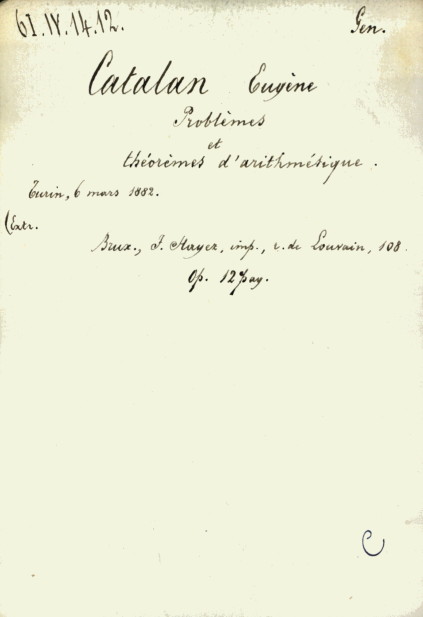 61.IV.14.12.
Gen.
Catalan Eugène
Problèmes
et
théorèmes d'arithmétique.
Turin, 6 mars 1882.
(Extr.
Brux., F. Hayez, imp., r. de Louvain, 108.
Op. 12 pag.
C